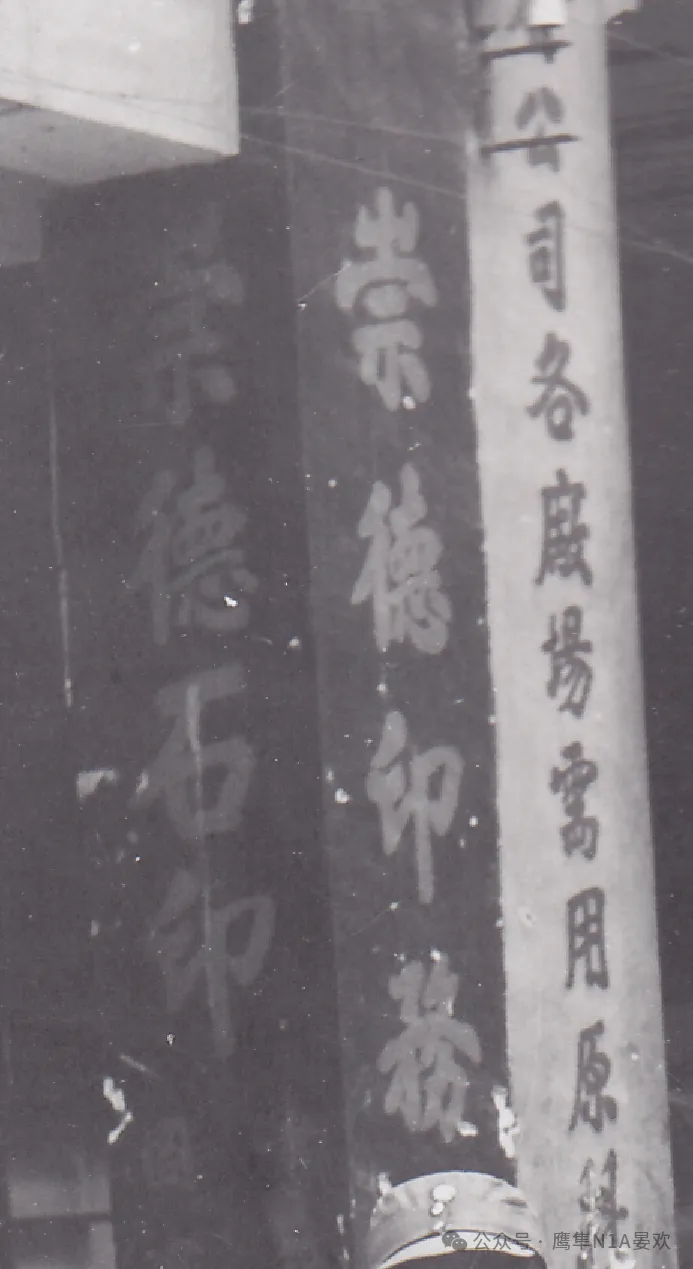 公司各廠場需用原料
崇德印務
崇德石印
公众号·鹰隼N1A晏欢